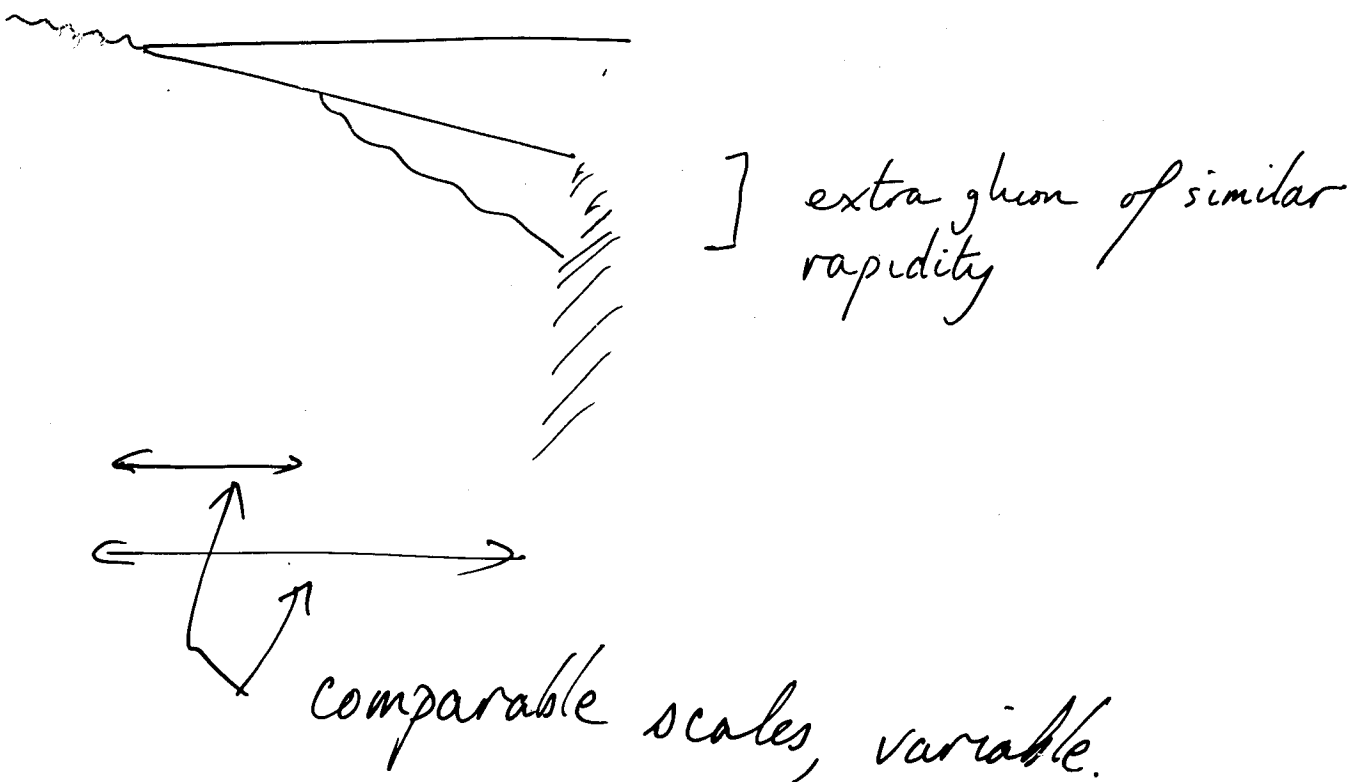 extra gluon of similar
rapidity
comparable scales, variable.